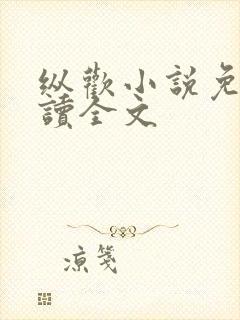 纵歡小説免
讀全文
凉笺